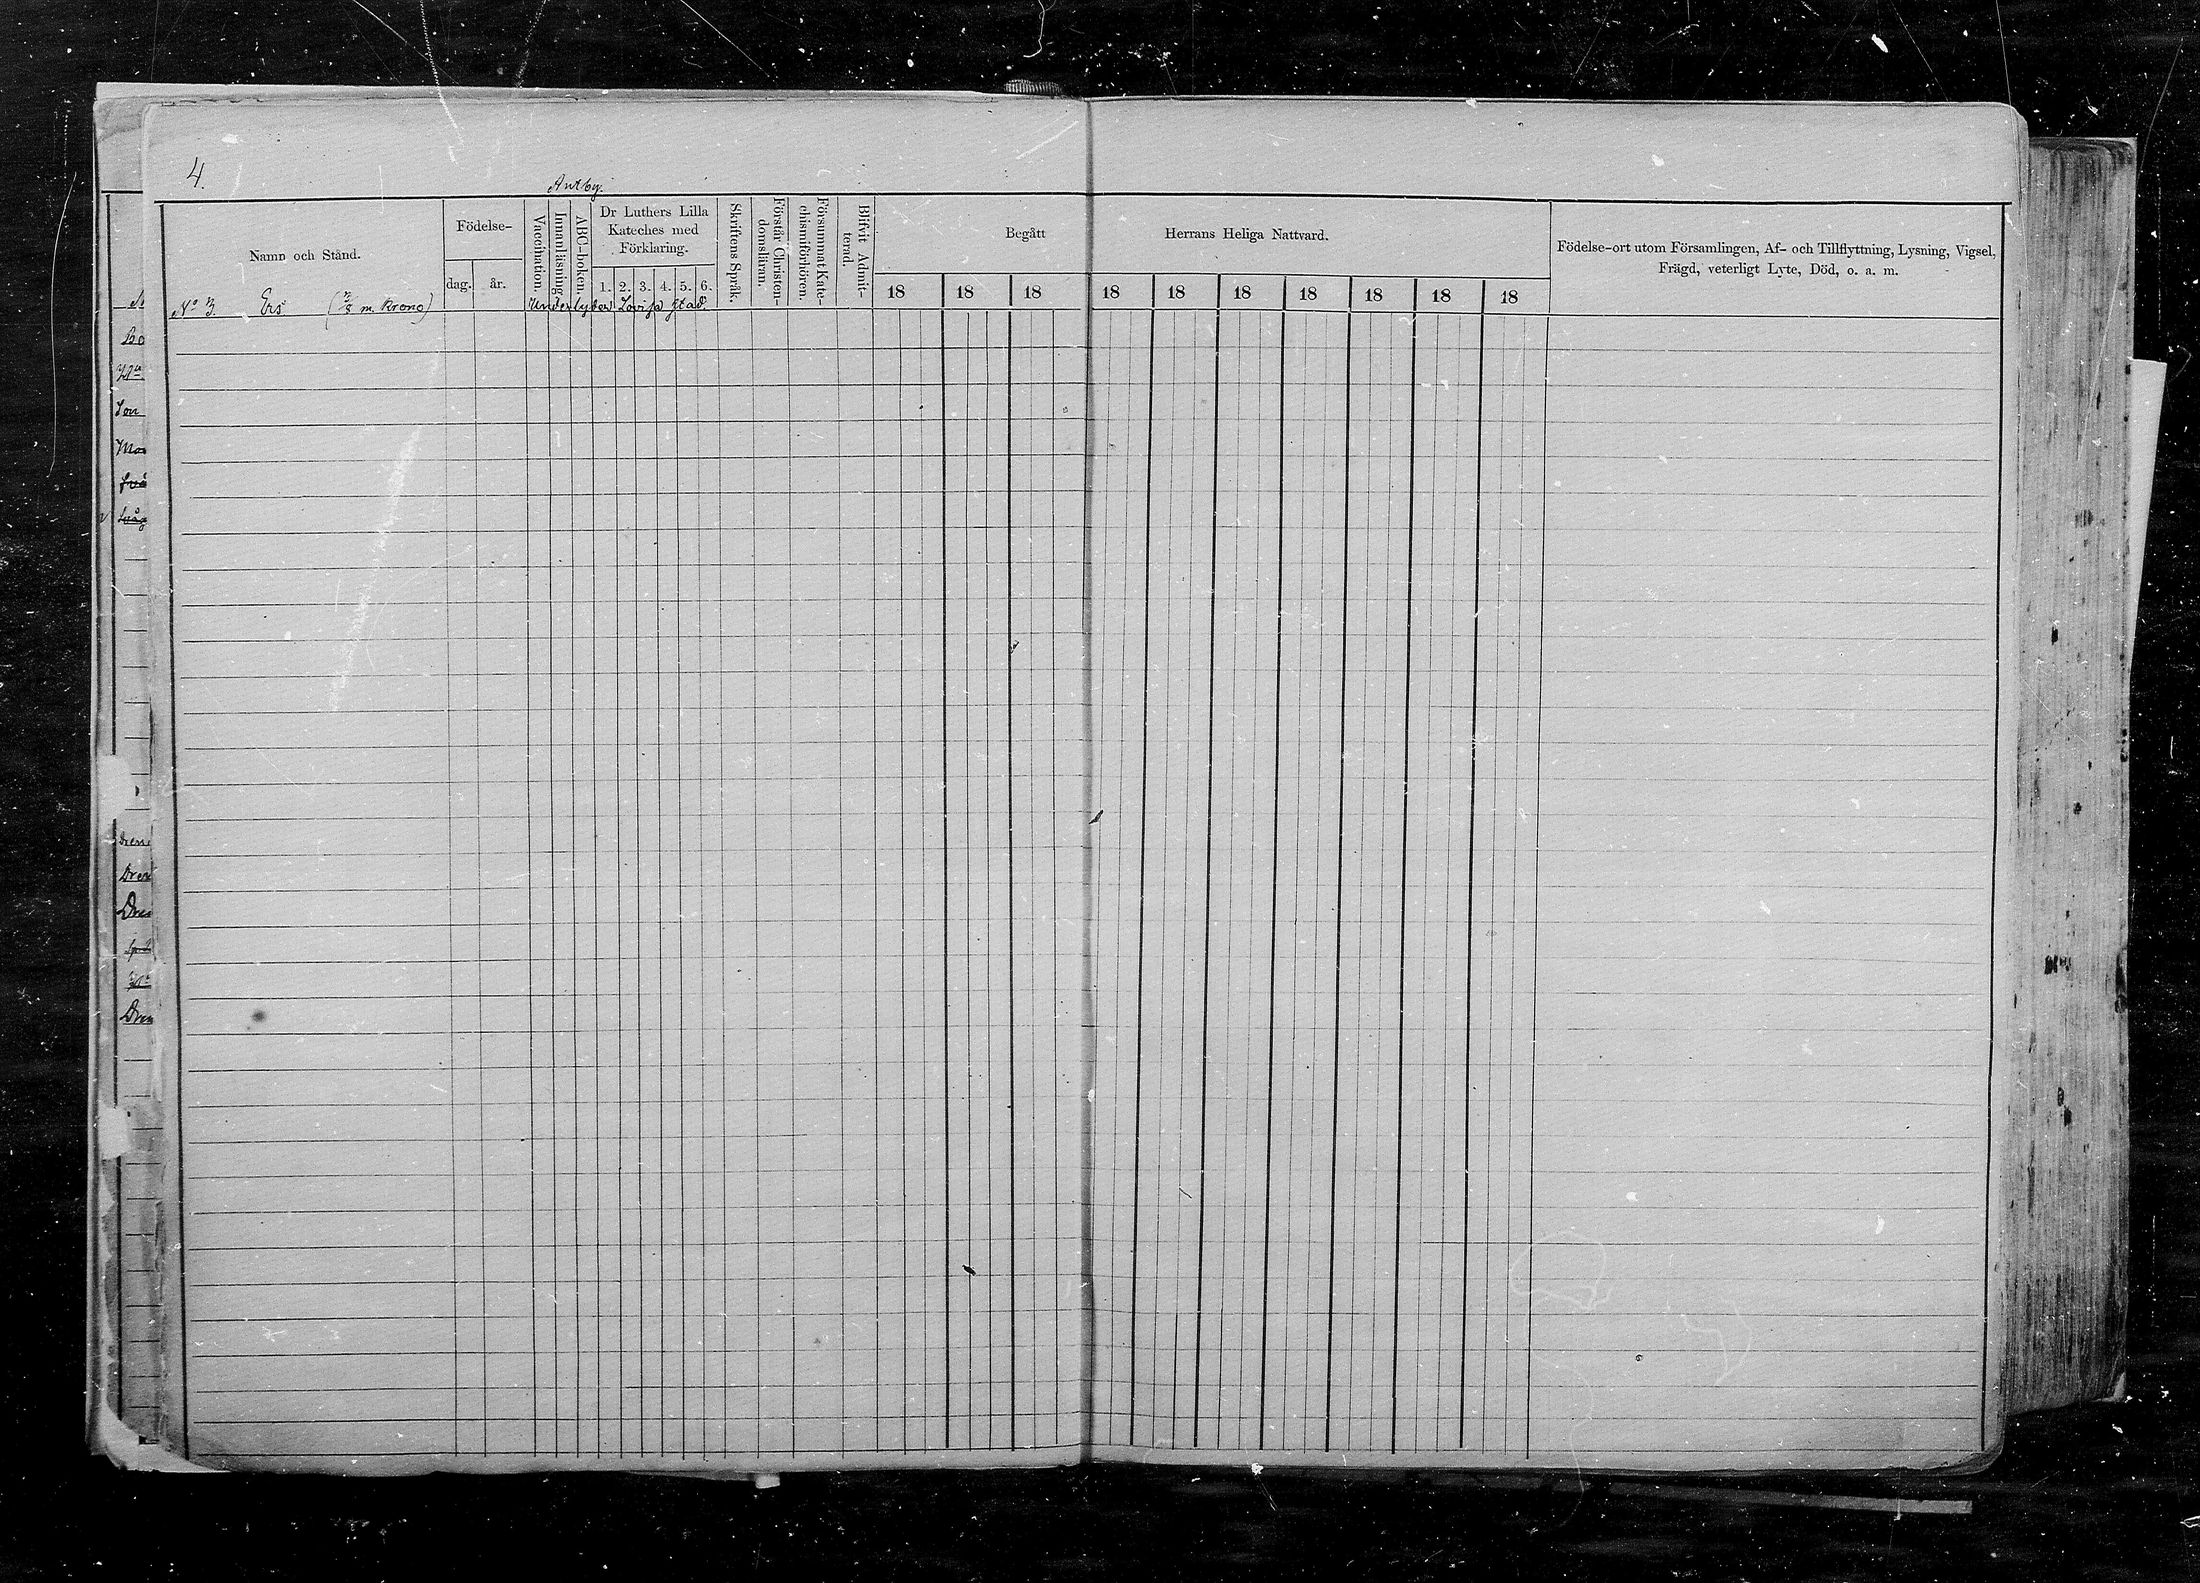 4.
Antby.
Namn och Stånd.
Födelse-
dag. år.
Vaccination.
Innanläsning.
ABC-boken.
Dr Luthers Lilla
Kateches med
Förklaring.
1. 2. 3. 4. 5. 6.
Skriftens Språk.
Förstår Christen-
domsläran.
Försummat Kate-
chismiförhören.
Blifvit Admit-
terad.
Begått Herrans Heliga Nattvard.
18 18 18 18 18 18 18 18 18 18
Födelse-ort utom Församlingen, Af- och Tillflyttning, Lysning, Vigsel,
Frägd, veterligt Lyte, Död, o. a. m.
No 3. Ers ( m. Krono) Underlyder Lovisa stad.
Bo
Son
Mo
Drän
Dren
Dre
Dren